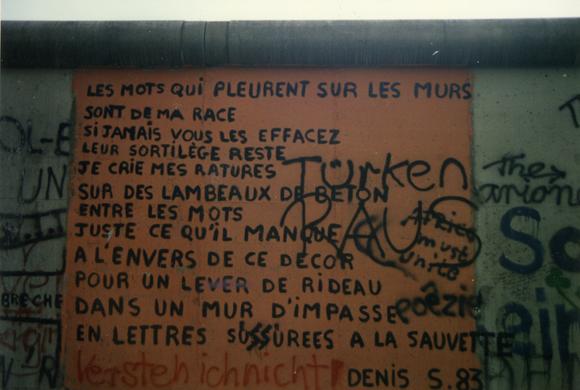 LES MOTS QUI PLEURENT SUR LES MURS
SONT DE MA RACE
SI JAMAIS VOUS LES EFFACEZ
LEUR SORTILÈGE RESTE
JE CRIE MES RATURES
SUR DES LAMBEAUX DE BÉTON
ENTRE LES MOTS
JUSTE CE QU'IL MANQUE
A L'ENVERS DE CE DÉCOR
POUR UN LEVER DE RIDEAU
DANS UN MUR D'IMPASSE
EN LETTRES SUSSURÉES A LA SAUVETTE
DENIS S. 83
Verstehichnicht
Türken
RAUS
Africa
must
unite
poêzie
The
UN
BRÈCHE